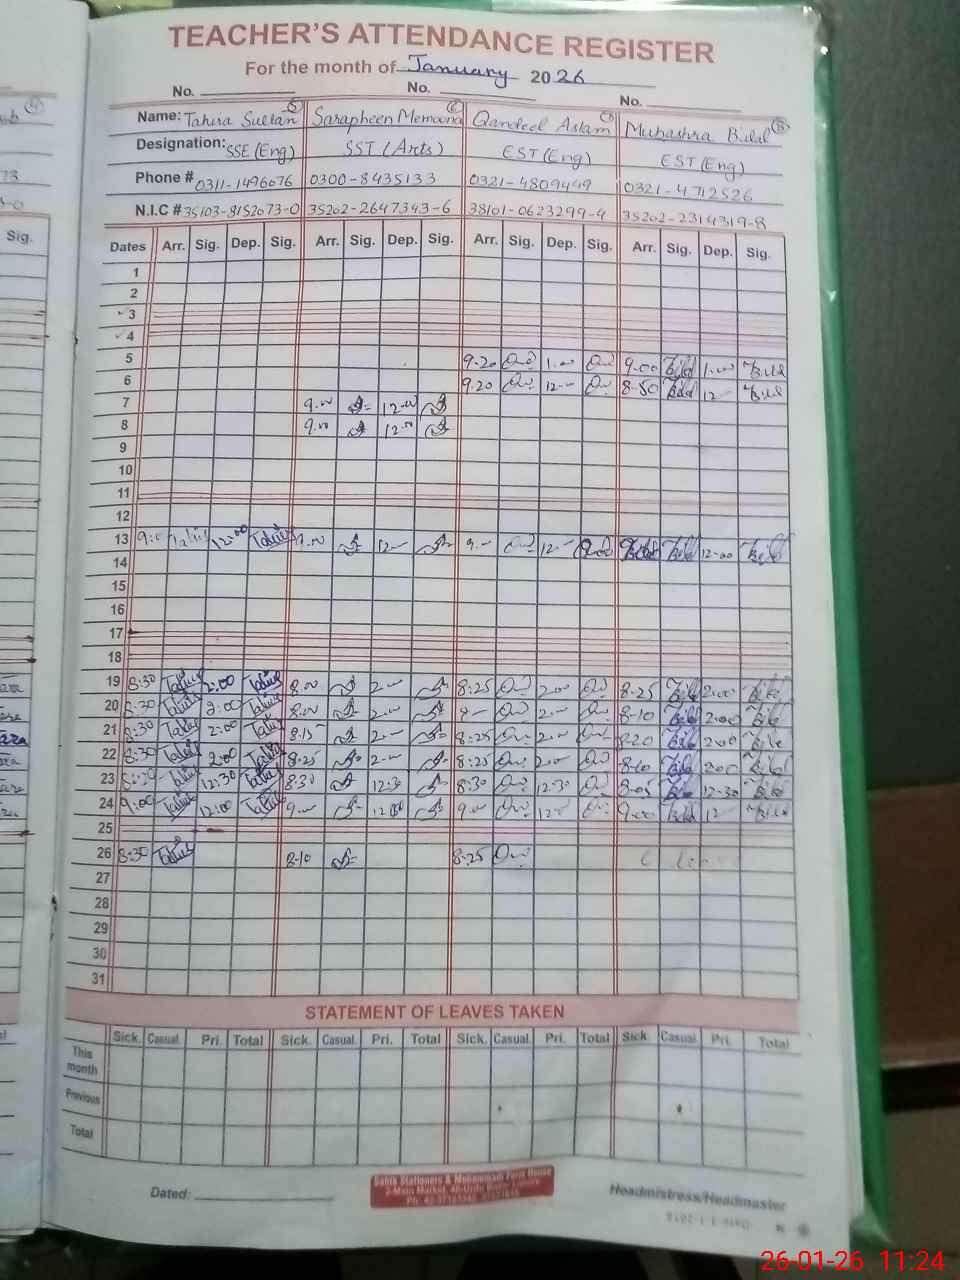 TEACHER'S ATTENDANCE REGISTER
For the month of January 2026
No. No. No.
Name: Tahira Sultan Sarapheen Memoona Qandeel Aslam Mubashra Bilal
Designation: SSE (Eng) SST (Arts) EST (Eng) EST (Eng)
Phone # 0311-1496076 0300-8435133 0321-4809449 0321-4712526
N.I.C # 35103-8152073-0 35202-2647343-6 38101-0623299-4 35202-2314319-8
Sig. Dates Arr. Sig. Dep. Sig. Arr. Sig. Dep. Sig. Arr. Sig. Dep. Sig. Arr. Sig. Dep. Sig.
1
2
3
4
5 9.20 1.00 9.00 Bilal 1.00 Bilal
6 9.20 12- 8-50 Bilal 12- Bilal
7 9.00 12.00
8 9.00 12.00
9
10
11
12
13 9:0 Tahira 12:00 Tahira 9.00 12- 9- 12- Bilal 12-00 Bilal
14
15
16
17
18
19 8:30 Tahira 2:00 Tahira 8.00 2- 8:25 2.00 8-25 Bilal 2.00 Bilal
20 8:30 Tahira 2:00 Tahira 8.00 2.00 8- 2.00 8-10 Bilal 2.00 Bilal
21 8:30 Tahira 2:00 Tahira 8:15 2- 8:25 2.00 8-20 Bilal 2.00 Bilal
22 8:30 Tahira 2:00 Tahira 8.25 2-00 8:25 2.00 8-10 Bilal 2.00 Bilal
23 8:30 Tahira 12:30 Tahira 8:30 12.30 8:30 12-30 8-05 Bilal 12-30 Bilal
24 9:00 Tahira 12:00 Tahira 9.00 12.00 9.00 12.0 9.00 Bilal 12- Bilal
25
26 8:30 Tahira 8-10 8-25
27
28
29
30
31
STATEMENT OF LEAVES TAKEN
Sick. Casual. Pri. Total Sick. Casual. Pri. Total Sick. Casual. Pri. Total Sick. Casual. Pri. Total
This month
Previous
Total
Dated:
Headmistress/Headmaster
26-01-26 11:24